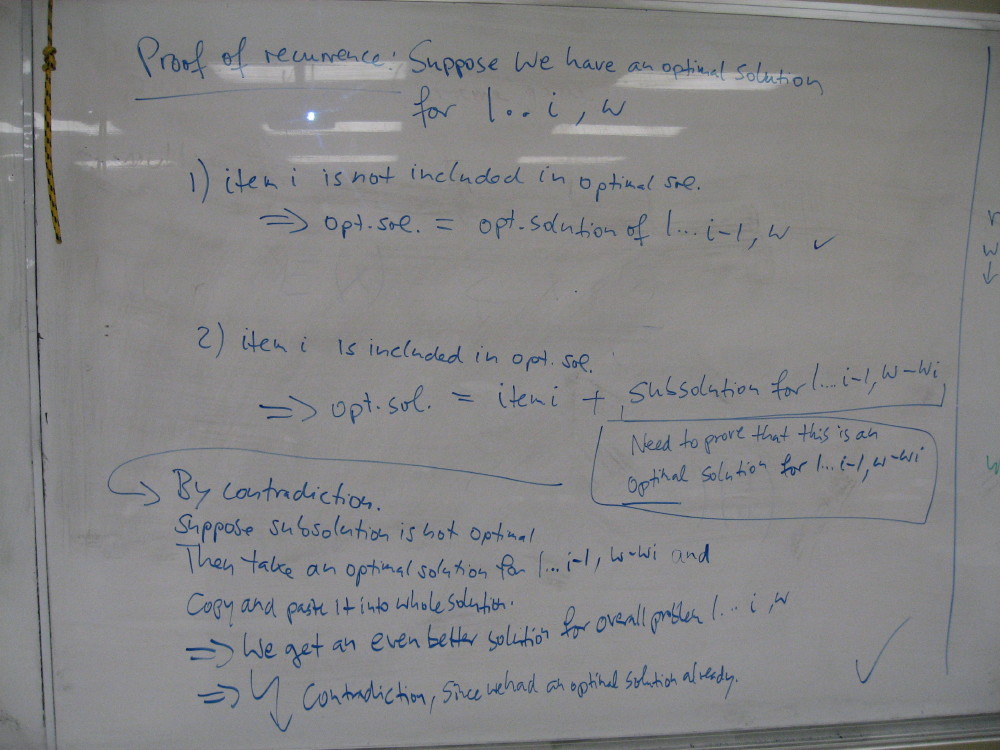 Proof of recurrence: Suppose we have an optimal solution
for 1.. i, w
1) item i is not included in optimal sol.
⇒ opt.sol. = opt.solution of 1... i-1, w ✓
2) item i is included in opt. sol.
⇒ opt.sol. = item i + subsolution for 1... i-1, w-wi
Need to prove that this is an
optimal solution for 1... i-1, w-wi
By contradiction.
Suppose subsolution is not optimal
Then take an optimal solution for 1... i-1, w-wi and
Copy and paste it into whole solution.
⇒ We get an even better solution for overall problem 1... i, w
⇒ Contradiction, since we had an optimal solution already. ✓
w